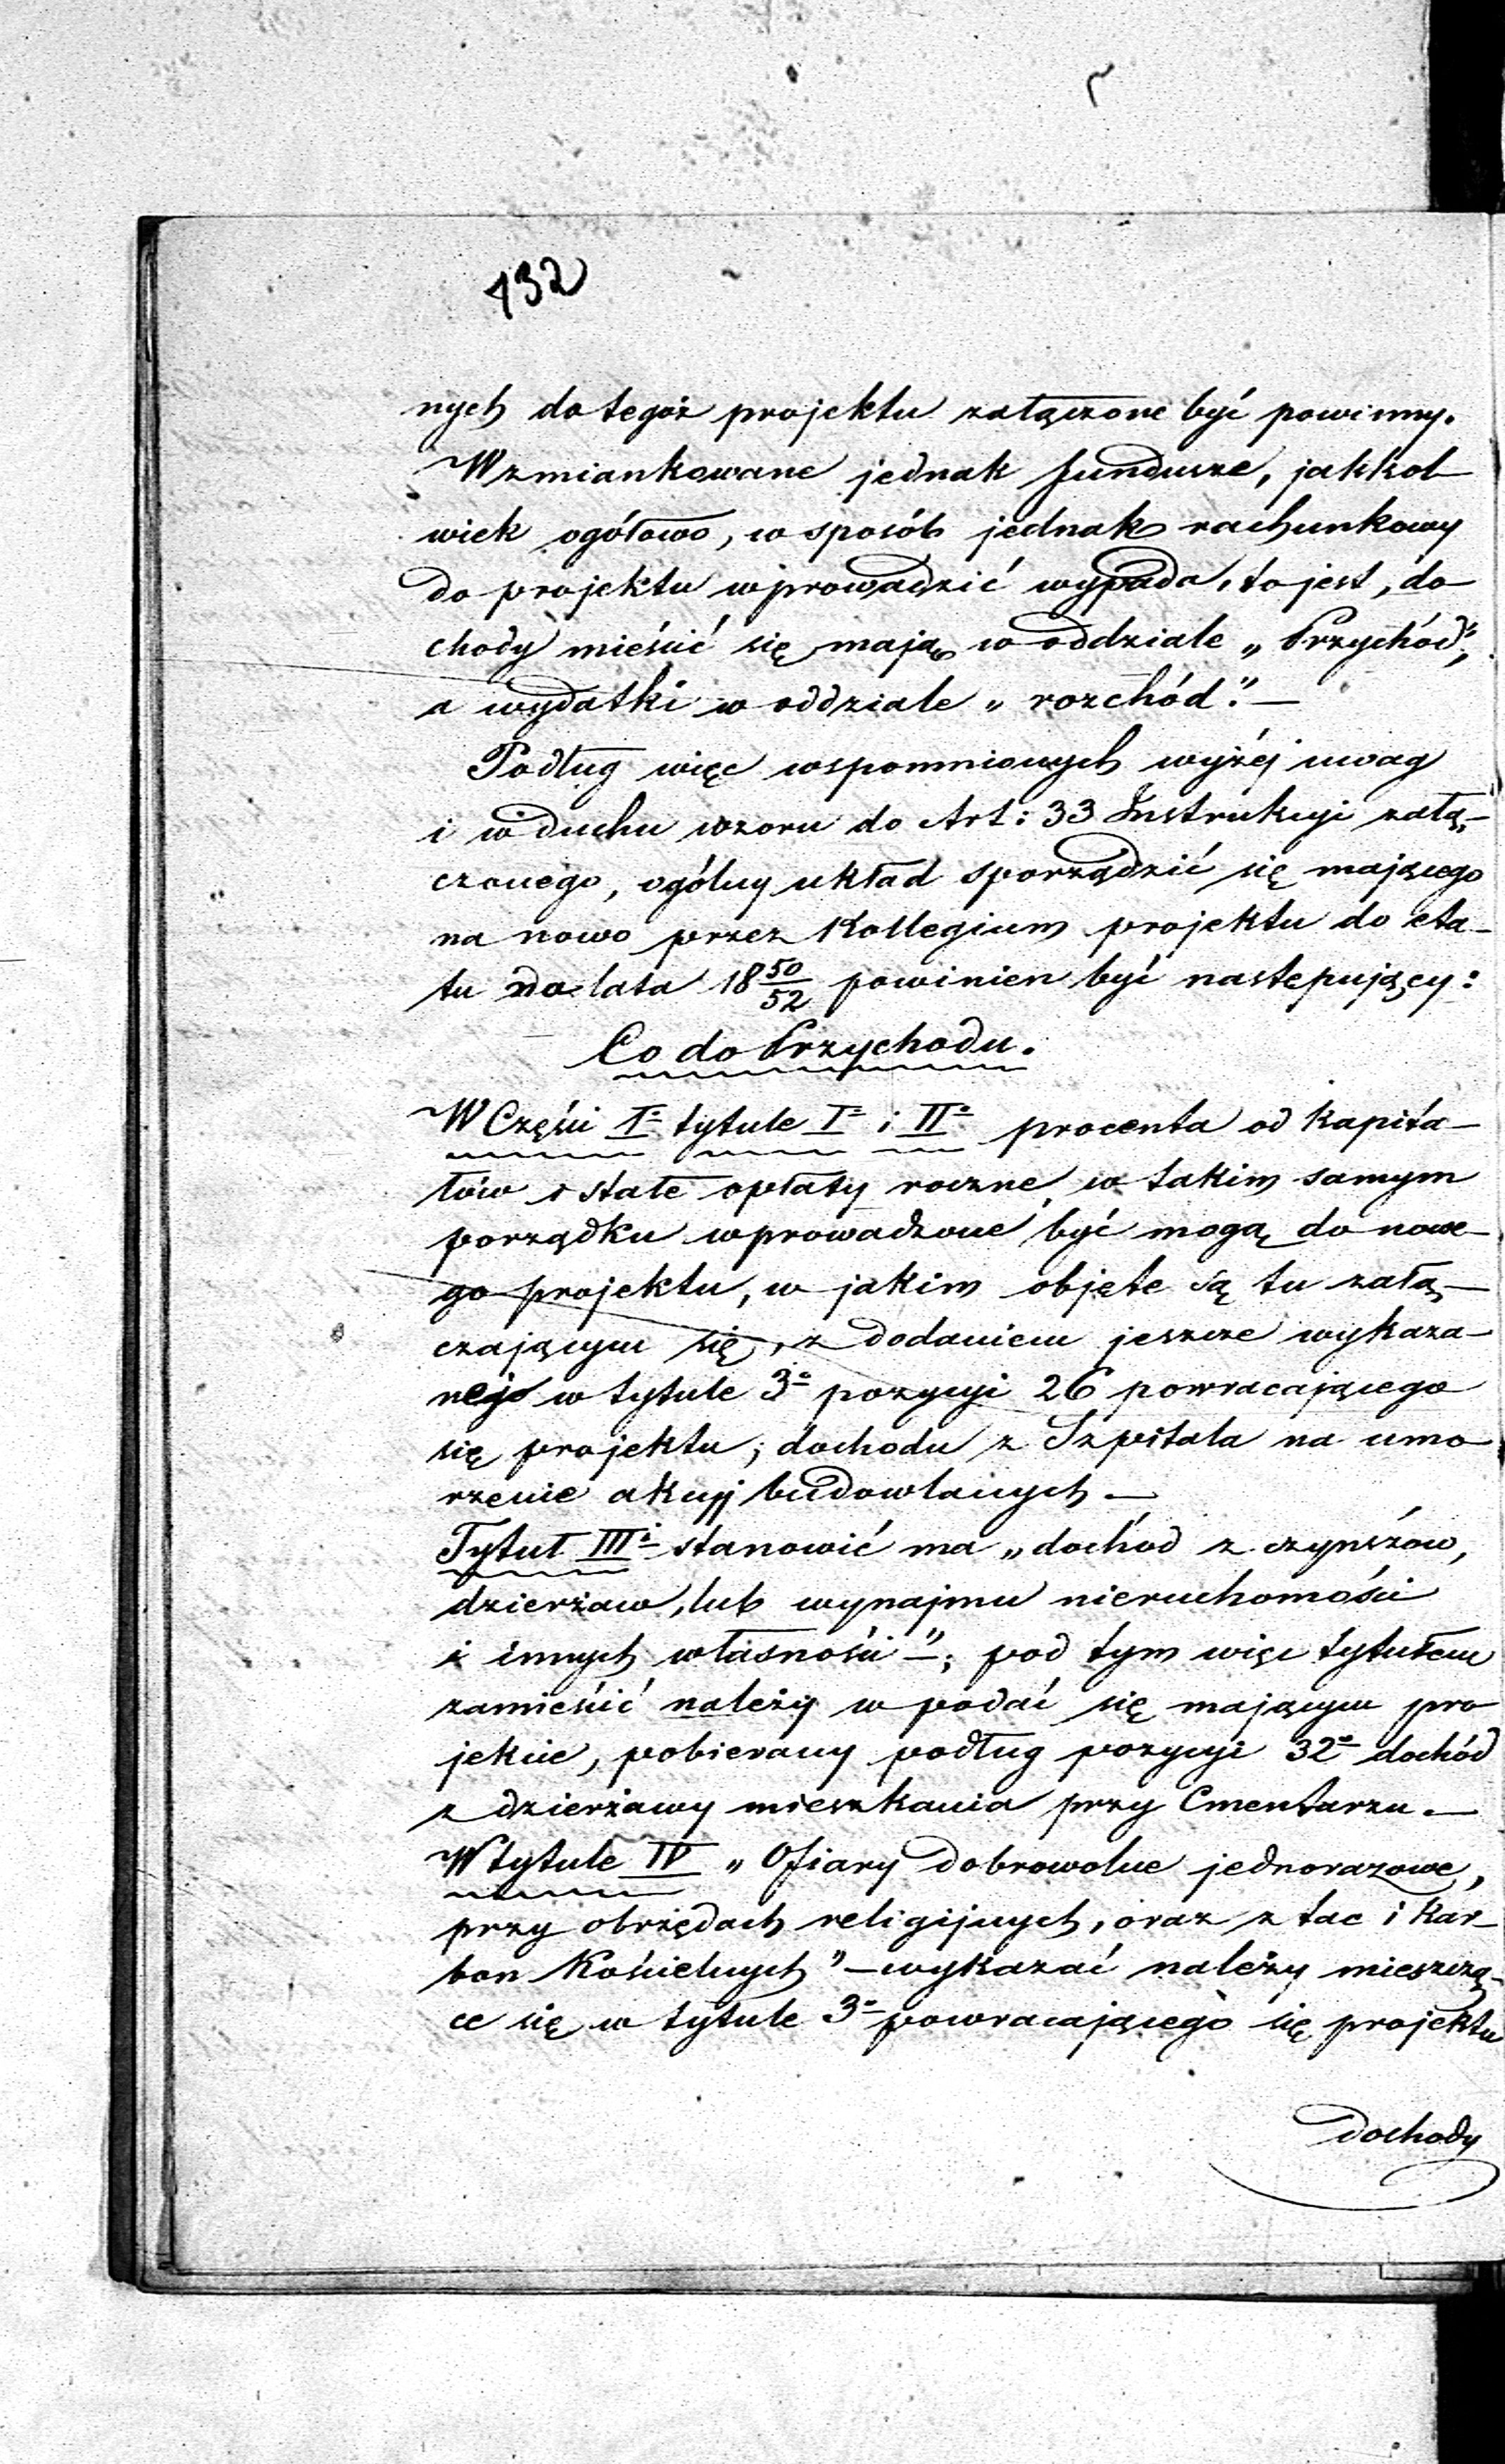 132
nych do tegóż projektu załączone być powinny.
Wzmiankowane jednak fundusze, jakkol-
wiek ogółowo, w sposób jednak rachunkowy
do projektu wprowadzić wypada, to jest, do-
chody mieścić się mają w oddziale „Przychód",
a wydatki w oddziale „rozchód". —
Podług więc wspomnionych wyżej uwag
i w duchu wzoru do Art: 33 Instrukcyi załą-
czonego, ogólny układ sporządzić się mającego
na nowo przez Kollegium projektu do eta-
tu na lata 18 50/52 powinien być następujący:
Co do Przychodu.
W Części I° tytule I° i II° procenta od kapita-
łów i stałe opłaty roczne, w takim samym
porządku wprowadzone być mogą do nowe-
go projektu, w jakim objęte są tu załą-
czającym się, z dodaniem jeszcze wykaza-
nego w tytule 3° pozycyi 26 powracającego
się projektu; dochodu z Szpitala na umo-
rzenie akcyj budowlanych —
Tytuł III: stanowić ma „dochód z czynszów,
dzierżaw, lub wynajmu nieruchomości
i innych własności —"; pod tym więc tytułem
zamieścić należy w podać się mającym pro-
jekcie, pobierany podług pozycyi 32° dochód
z dzierżawy mieszkania przy Cmentarzu. —
W tytule IV „Ofiary dobrowolne jednorazowe,
przy obrzędach religijnych, oraz z tac i kar-
bon Kościelnych" — wykazać należy mieszczą-
ce się w tytule 3° powracającego się projektu
Dochody